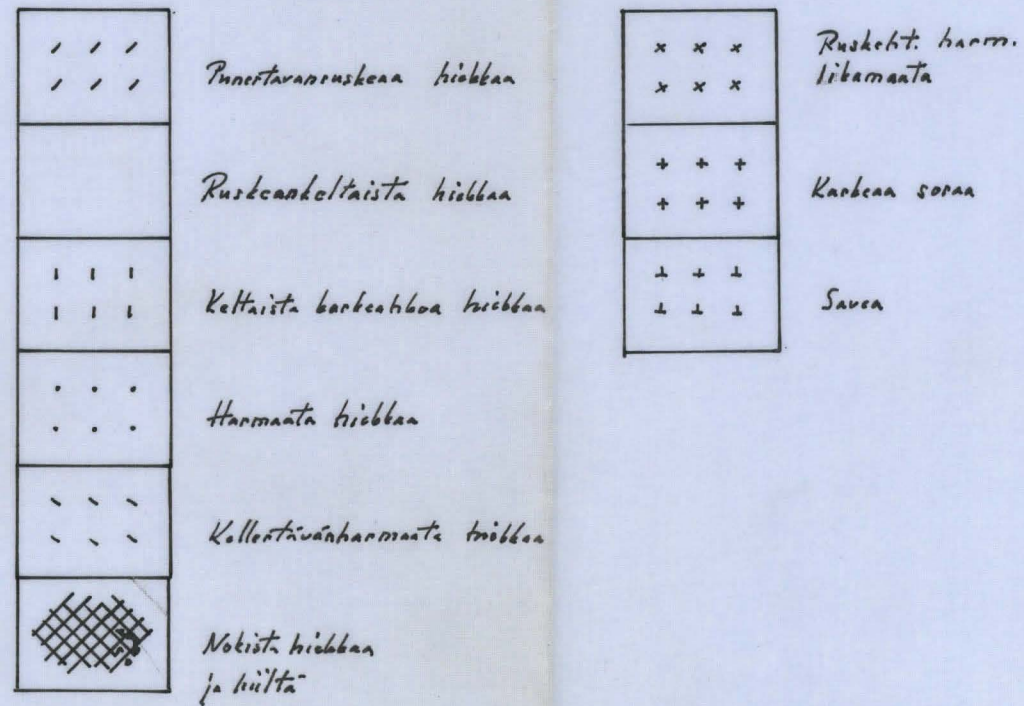 Punertavanruskeaa hiekkaa
Ruskeankeltaista hiekkaa
Keltaista karkeahkoa hiekkaa
Harmaata hiekkaa
Kellertävänharmaata hiekkaa
Nokista hiekkaa
ja hiiltä
Ruskeht. harm.
likamaata
Karkeaa soraa
Savea